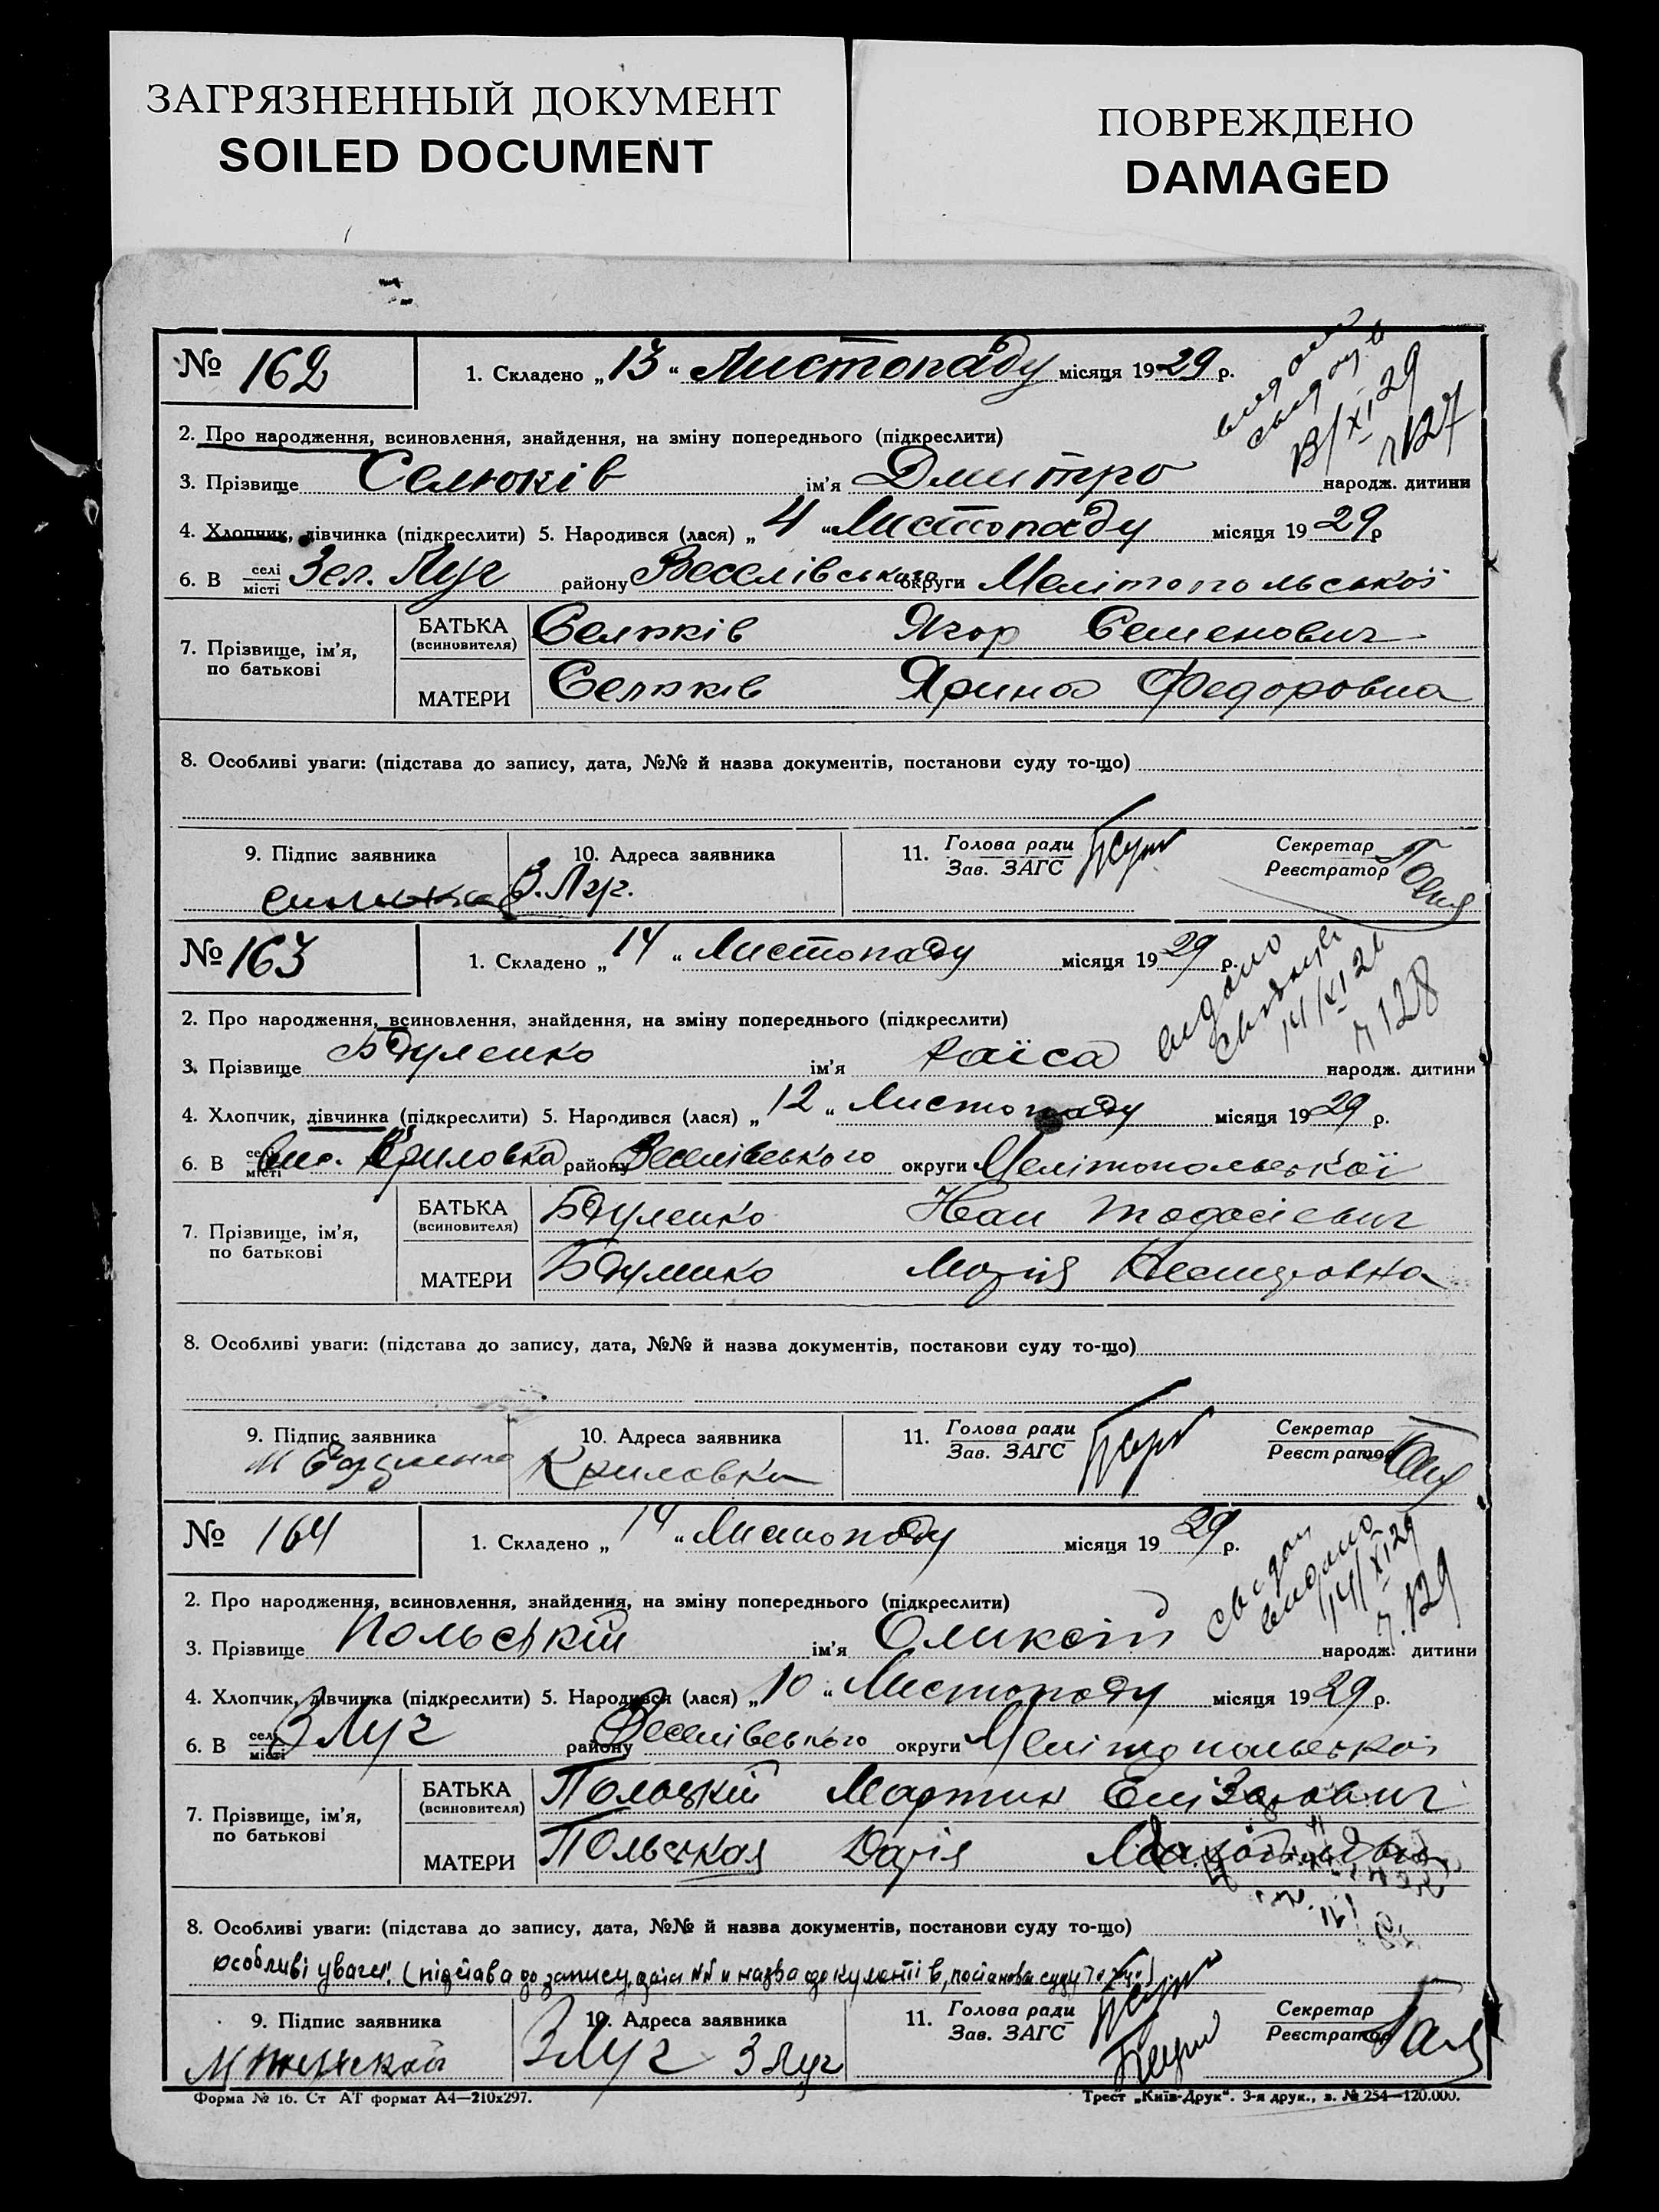 ЗАГРЯЗНЕННЫЙ ДОКУМЕНТ
SOILED DOCUMENT
ПОВРЕЖДЕНО
DAMAGED
№ 162
1. Складено „13“ Листопаду місяця 1929 р.
13/XI 29
127
2. Про народження, всиновлення, знайдення, на зміну попереднього (підкреслити)
3. Прізвище Селюків ім'я Дмитро народж. дитини
4. Хлопчик, дівчинка (підкреслити) 5. Народився (лася) „4“ Листопаду місяця 1929 р
6. В селі місті Зел. Луг району Веселівського округи Мелітопольської
7. Прізвище, ім'я, по батькові
БАТЬКА (всиновителя) Селюків Ягор Семенович
МАТЕРИ Селюків Ярина Федоровна
8. Особливі уваги: (підстава до запису, дата, №№ й назва документів, постанови суду то-що)
9. Підпис заявника
10. Адреса заявника З. Луг.
11. Голова ради Зав. ЗАГС
Секретар Реєстратор
№ 163
1. Складено „14“ Листопаду місяця 1929 р.
видано
14/XI 2
128
2. Про народження, всиновлення, знайдення, на зміну попереднього (підкреслити)
3. Прізвище ім'я Раїса народж. дитини
4. Хлопчик, дівчинка (підкреслити) 5. Народився (лася) „12“ Листопаду місяця 1929 р.
6. В селі місті Криловка району Веселівського округи Мелітопольської
7. Прізвище, ім'я, по батькові
БАТЬКА (всиновителя)
МАТЕРИ Марія
8. Особливі уваги: (підстава до запису, дата, №№ й назва документів, постанови суду то-що)
9. Підпис заявника
10. Адреса заявника Криловка
11. Голова ради Зав. ЗАГС
Секретар Реєстратор
№ 164
1. Складено „14“ Листопаду місяця 1929 р.
видано
14/XI 29
129
2. Про народження, всиновлення, знайдення, на зміну попереднього (підкреслити)
3. Прізвище Польскій ім'я Оликсій народж. дитини
4. Хлопчик, дівчинка (підкреслити) 5. Народився (лася) „10“ Листопаду місяця 1929 р.
6. В селі місті З Луг району Веселівського округи Мелітопольської
7. Прізвище, ім'я, по батькові
БАТЬКА (всиновителя) Польскій Мартин Елізарович
МАТЕРИ Польская Дарія
8. Особливі уваги: (підстава до запису, дата, №№ й назва документів, постанови суду то-що)
особливі уваги: (підстава до запису, дата №№ и назва документів, постанови суду то що)
9. Підпис заявника
10. Адреса заявника З Луг З Луг
11. Голова ради Зав. ЗАГС
Секретар Реєстратор
Форма № 16. Ст АТ формат А4—210х297.
Трест „Київ-Друк“. 3-я друк., з. № 254—120.000.